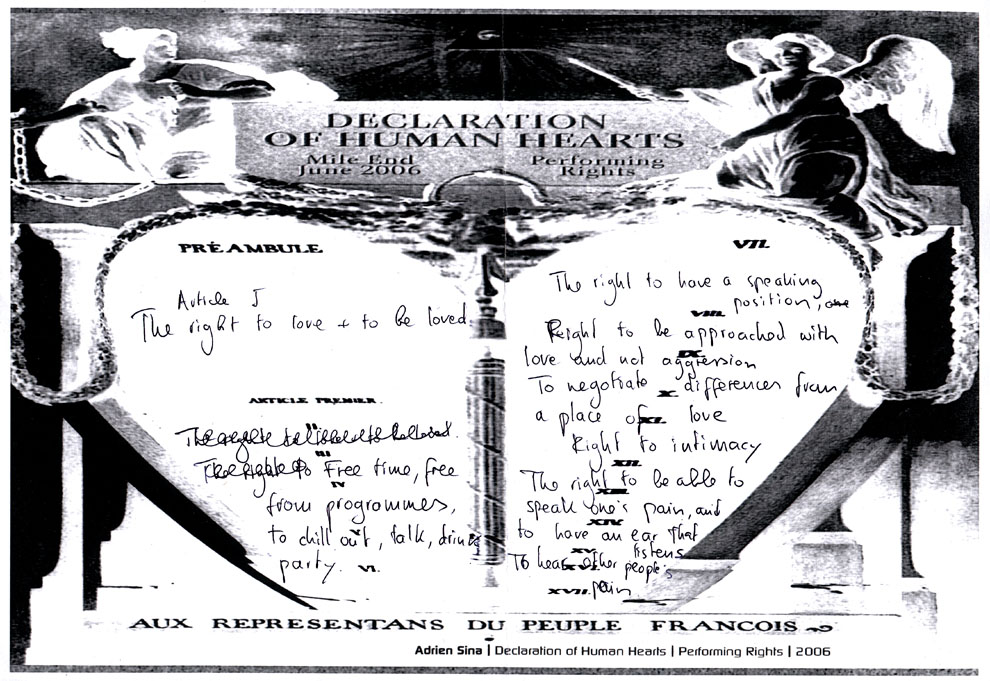 DECLARATION
OF HUMAN HEARTS
Mile End
June 2006
Performing
Rights
PRÉAMBULE
Article I
The right to love + to be loved
ARTICLE PREMIER.
II
III
to Free time, free
IV
from programmes,
V
to chill out, talk, drink
party.
VI.
VII.
The right to have a speaking
position,
VIII.
Right to be approached with
IX
love and not aggression
To negotiate differences from
X.
a place of love
XI.
Right to intimacy
XII.
The right to be able to
XIII.
speak one's pain, and
XIV
to have an ear that
listens
XV
To hear other people's
XVI.
pain
XVII.
AUX REPRESENTANS DU PEUPLE FRANCOIS
Adrien Sina | Declaration of Human Hearts | Performing Rights | 2006